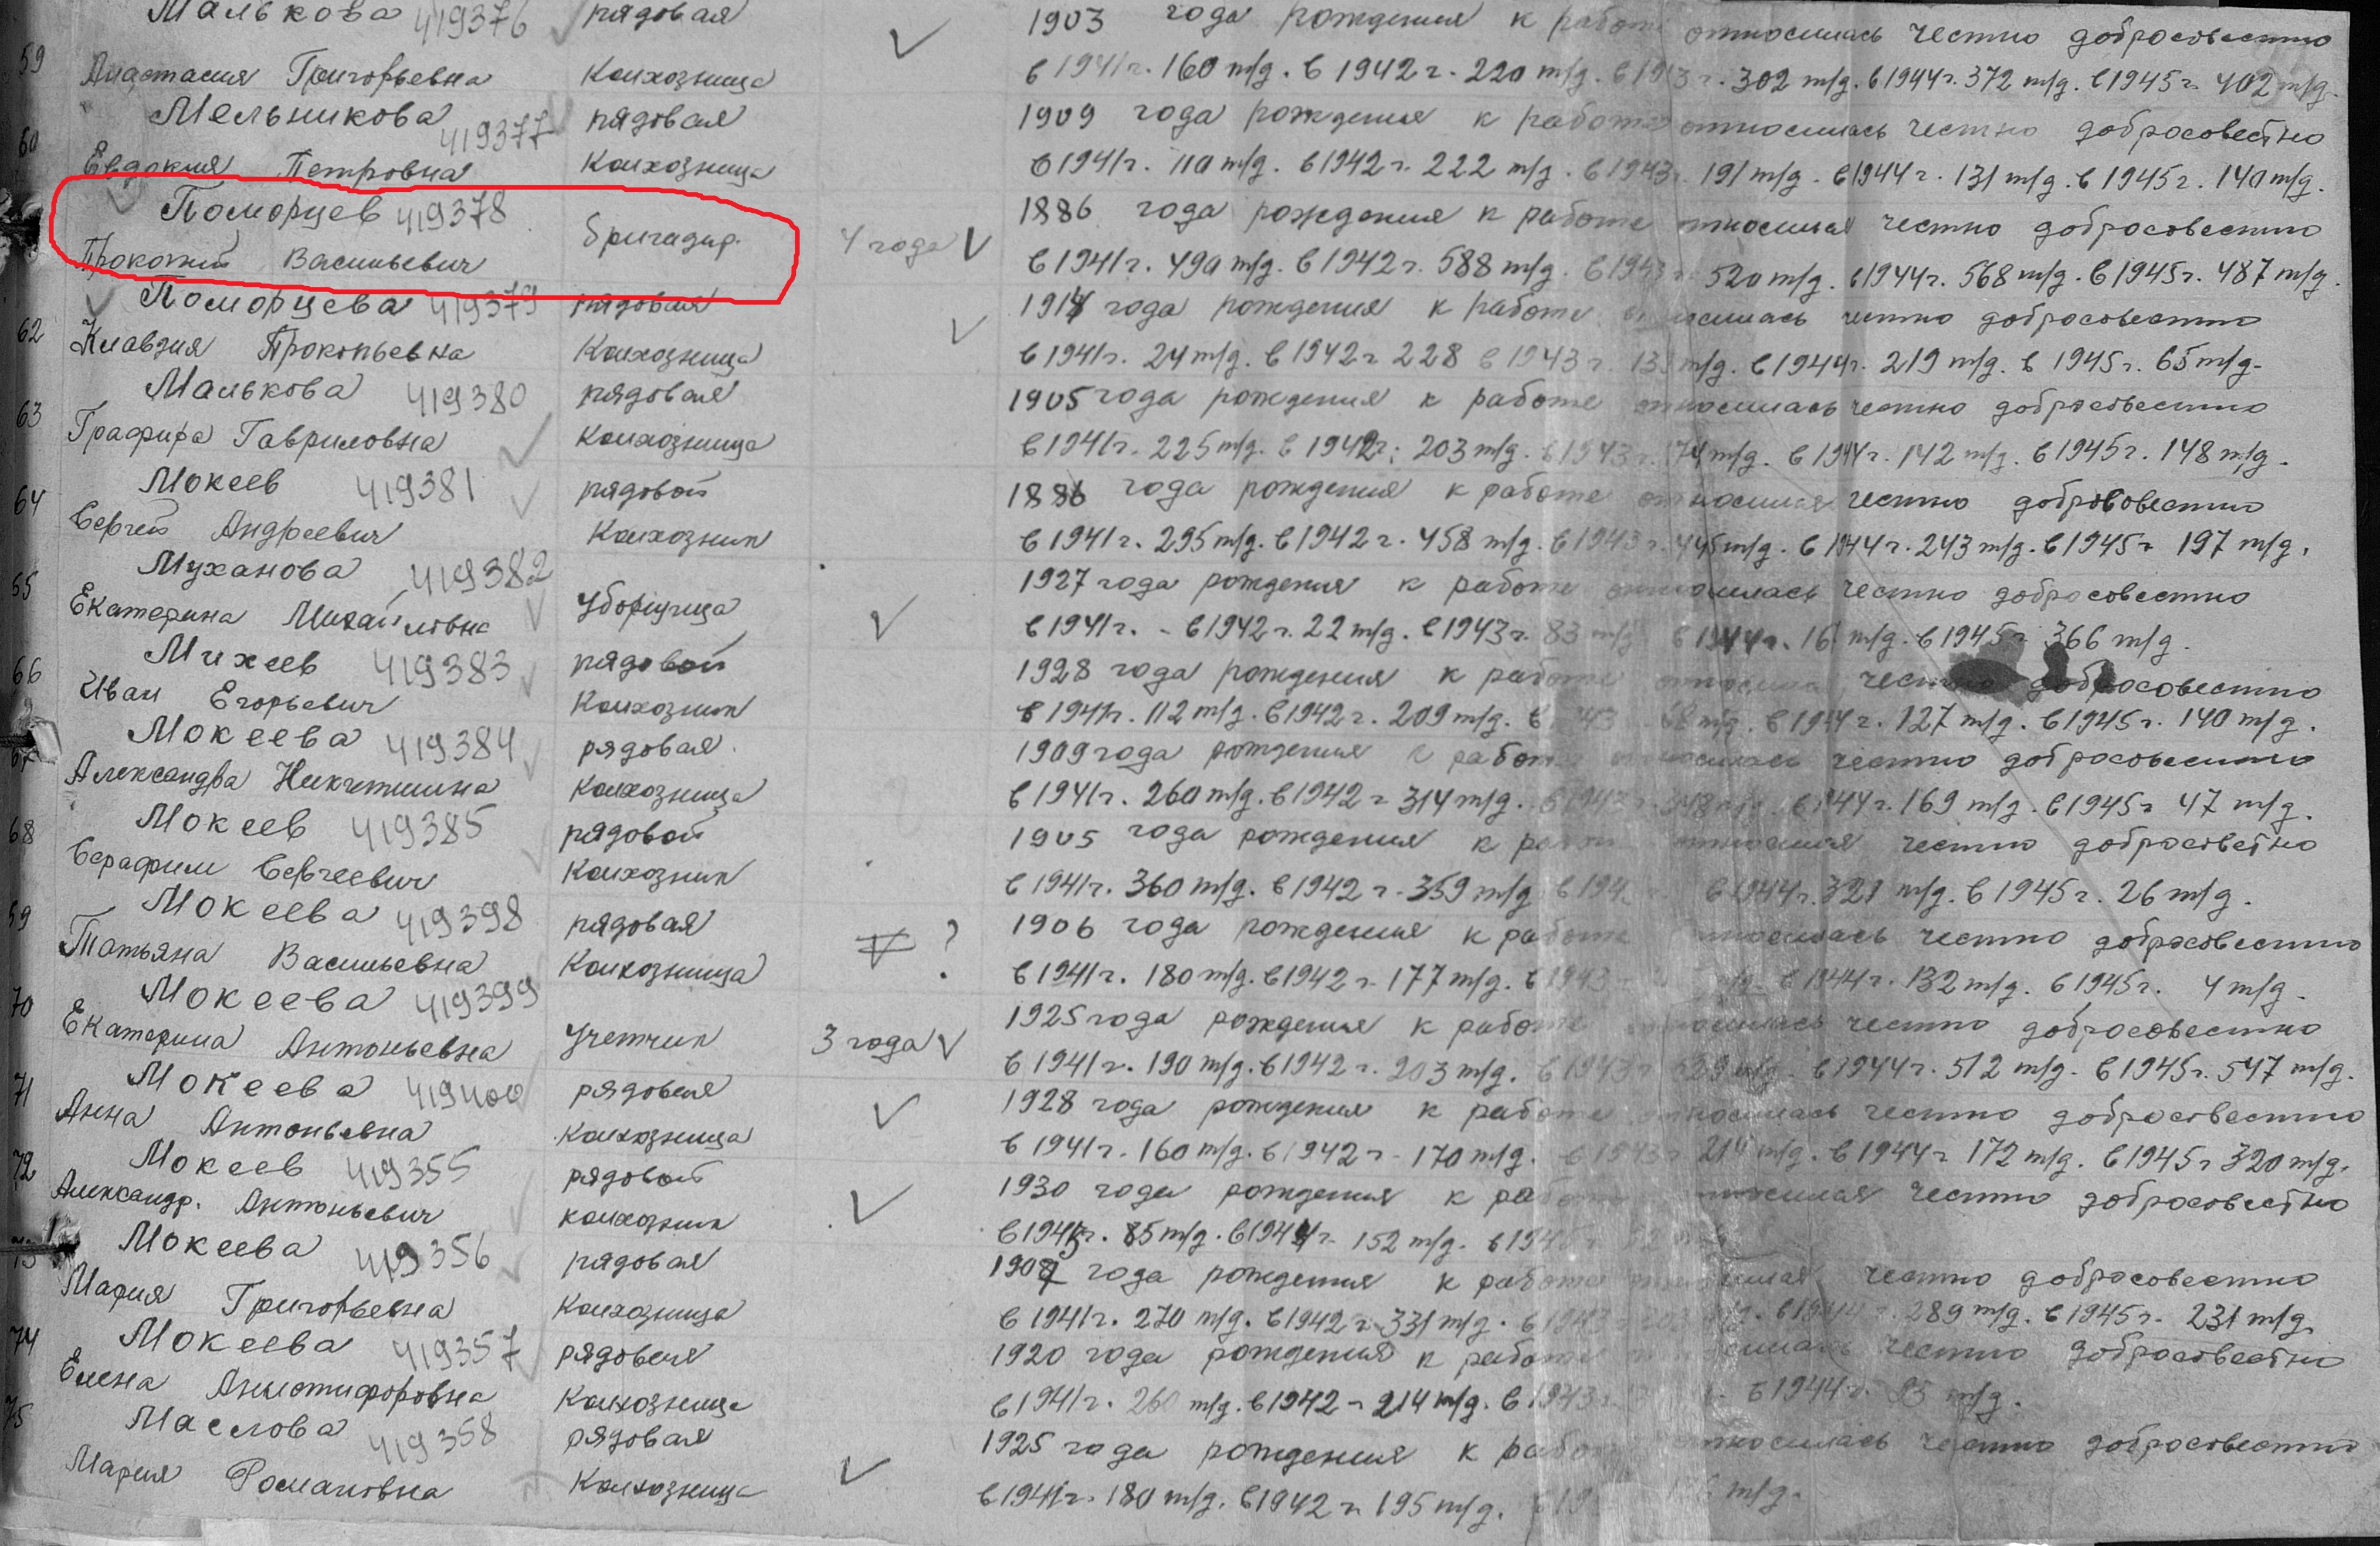 Малькова 419376 рядовая 1903 года рождения к работе относилась честно добросовестно
59 Анастасия Григорьевна Колхозница в 1941г. 160 т/д. в 1942г. 220 т/д. в 1943г. 302 т/д. в 1944г. 372 т/д. в 1945г. 402 т/д.
Мельникова 419377 рядовая 1909 года рождения к работе относилась честно добросовестно
60 Евдокия Петровна Колхозница в 1941г. 110 т/д. в 1942г. 222 т/д. в 1943 191 т/д. в 1944г. 131 т/д. в 1945г. 140 т/д.
Поморцев 419378 бригадир. 4 года 1886 года рождения к работе относился честно добросовестно
Прокопий Васильевич в 1941г. 490 т/д. в 1942г. 588 т/д. в 1943 520 т/д. в 1944г. 568 т/д. в 1945г. 487 т/д.
Поморцева 419379 рядовая 1914 года рождения к работе относилась честно добросовестно
62 Клавдия Прокопьевна Колхозница в 1941г. 24 т/д. в 1942г 228 в 1943г. т/д. в 1944г. 219 т/д. в 1945г. 65 т/д.
Малькова 419380 рядовая 1905 года рождения к работе относилась честно добросовестно
63 Графира Гавриловна Колхозница в 1941г. 225 т/д. в 1942г. 203 т/д. в 1943г. 174 т/д. в 1944г. 142 т/д. в 1945г. 148 т/д.
Мокеев 419381 рядовой 1886 года рождения к работе относился честно добрововестно
64 Сергей Андреевич Колхозник в 1941г. 295 т/д. в 1942г. 458 т/д. в 1943г. 445 т/д. в 1944г. 243 т/д. в 1945г 197 т/д.
Муханова 419382 Уборщица 1927 года рождения к работе относилась честно добросовестно
65 Екатерина Михайловна в 1941г. - в 1942г. 22 т/д. в 1943г. 83 т/д в 1944г. т/д. в 1945г 366 т/д.
Михеев 419383 рядовой 1928 года рождения к работе честно добросовестно
66 Иван Егорьевич Колхозник в 1941г. 112 т/д. в 1942г. 209 т/д. в 1943 т/д. в 1944г. 127 т/д. в 1945г. 140 т/д.
Мокеева 419384 рядовая. 1909 года рождения к работе относилась честно добросовестно
67 Александра Никитишна Колхозница в 1941г. 260 т/д. в 1942г 314 т/д. в 1944г. 169 т/д. в 1945г 47 т/д.
Мокеев 419385 рядовой 1905 года рождения к работе относился честно добросовестно
68 Серафим Сергеевич Колхозник в 1941г. 360 т/д. в 1942г. 359 т/д в 1944г. 321 т/д. в 1945г. 26 т/д.
Мокеева 419398 рядовая ? 1906 года рождения к работе относилась честно добросовестно
69 Татьяна Васильевна Колхозница в 1941г. 180 т/д. в 1942г. 177 т/д. в 1943 т/д. в 1944г. 132 т/д. в 1945г. 4 т/д.
Мокеева 419399 Учетчик 3 года 1925 года рождения к работе относилась честно добросовестно
70 Екатерина Антоньевна в 1941г. 190 т/д. в 1942г. 203 т/д. в 1943г т/д. в 1944г. 512 т/д. в 1945г. 547 т/д.
Мокеева 419400 рядовая 1928 года рождения к работе относилась честно добросовестно
71 Анна Антоньевна Колхозница в 1941г. 160 т/д. в 1942г. 170 т/д. в 1943г 214 т/д. в 1944г 172 т/д. в 1945г 320 т/д.
Мокеев 419355 рядовой 1930 года рождения к работе относился честно добросовестно
72 Александр. Антоньевич колхозник 85 т/д. в 1944г. 152 т/д.
Мокеева 419356 рядовая года рождения к работе честно добросовестно
73 Мария Григорьевна Колхозница в 1941г. 270 т/д. в 1942г. 331 т/д. в 1943 т/д. в 1944г. 289 т/д. в 1945г. 231 т/д.
Мокеева 419357 рядовая 1920 года рождения к работе относилась честно добросовестно
74 Елена Анистифоровна Колхозница в 1941г. 260 т/д. в 1942г 214 т/д. в 1943г. в 1944г. т/д.
Маслова 419358 рядовая 1925 года рождения к работе относилась честно добросовестно
75 Мария Романовна Колхозница в 1941г. 180 т/д. в 1942г. 195 т/д. т/д.